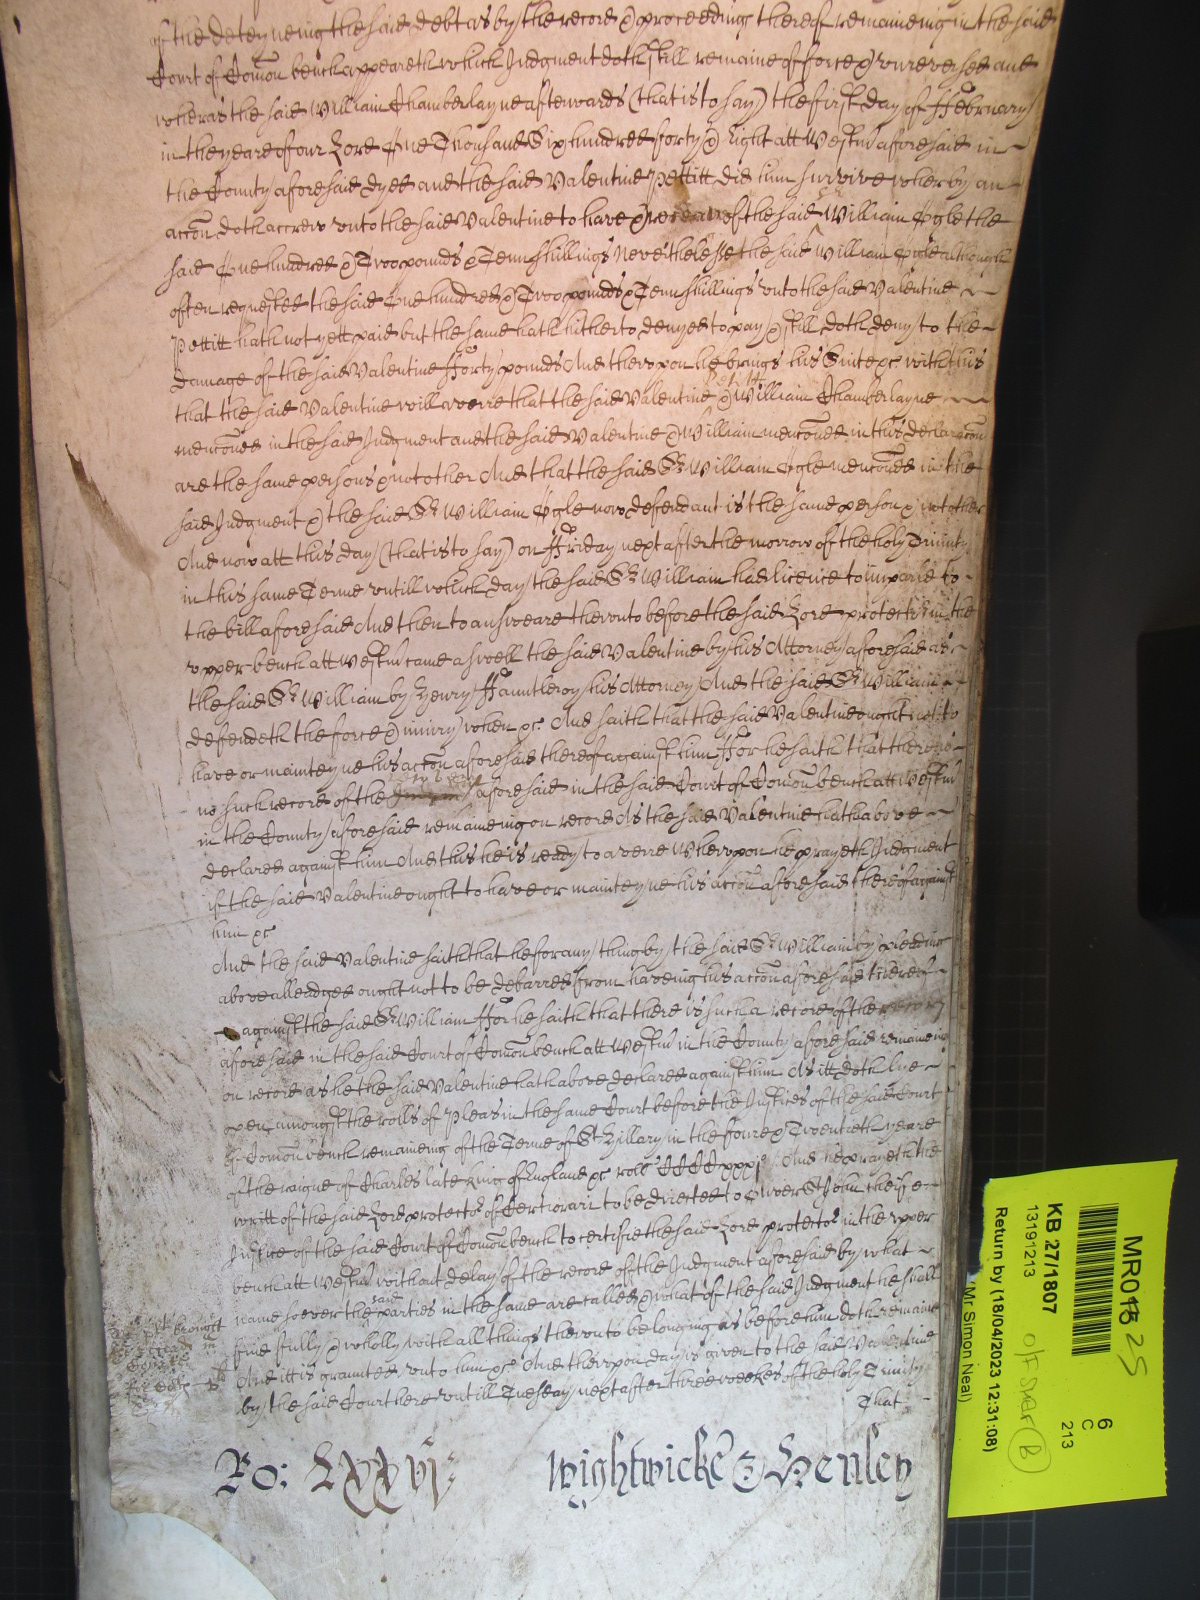 of the deteyneing the said debt as by the record & proceedings thereof remaineing in the said
Court of Comon bench appeareth which Judgment doth still remaine of force & unreversed and
wheras the said William Chamberlayne afterwards (that is to say) the first day of February
in the yeare of our Lord One Thousand Six hundred forty & Eight att Westm aforesaid in
the County aforesaid dyed and the said Valentine Pettitt did him survive wherby an
accon doth accrew unto the said Valentine to have & of the said Sr William Ogle the
said One hundred & Twoo pounds & Tenn shillings Neverthelesse the said Sr William Ogle although
often requested the said One hundred & Twoo pounds & Tenn shillings unto the said Valentine
Pettitt hath not yett paid but the same hath hitherto denyed to pay & still doth deny to the
damage of the said Valentine Forty pounds And therupon he brings his Suite &c with this
that the said Valentine will averre that the said Valentine Pettitt & William Chamberlayne
menconed in the said Judgment and the said Valentine & William menconed in this declaracon
are the same persons & not other And that the said Sr William Ogle menconed in the
said Judgment & the said Sr William Ogle now defendant is the same person & not other
And now att this day (that is to say) on Friday next after the morrow of the holy Trinity
in this same Terme untill which day the said Sr William had licence to imparle to
the bill aforesaid And then to answeare therunto before the said Lord protector in the
upper bench att Westm came aswell the said Valentine by his Attorney aforesaid as
the said Sr William by Henry Fauntleroy his Attorney And the said Sr William
defendeth the force & iniury when &c And saith that the said Valentine ought not to
have or mainteyne his accon aforesaid thereof against him For he saith that there is
no such record of the aforesaid in the said Court of Comon bench att Westm
in the County aforesaid remaineing on record As the said Valentine hath above
declared against him And this he is ready to averre Wherupon he prayeth Judgment
if the said Valentine ought to have or mainteyne his accon aforesaid thereof against
him &c
And the said Valentine saith that he for any thing by the said Sr William by pleading
above alleadged ought not to be debarred from haveing his accon aforesaid thereof
against the said Sr William For he saith that there is such a record of the recovery
aforesaid in the said Court of Comon bench att Westm in the County aforesaid remaineing
on record as he the said Valentine hath above declared against him As itt doth lye
open amongst the rolls of Pleas in the same Court before the Justices of the said Court
of Comon bench remaineing of the Terme of St Hillary in the foure & Twentieth yeare
of the raigne of Charles late king of England &c roll CCCCxxxj And he prayeth the
writt of the said Lord protector of Certiorari to be directed to Oliver St John cheife
Justice of the said Court of Comon bench to certifie the said Lord protector in the upper
bench att Westm without delay of the record of the Judgment aforesaid by what
name soever the said parties in the same are called & what of the said Judgment he shall
find fully & wholly with all things therunto belonging as before him doth remaine
And itt is graunted unto him &c And therupon day is given to the said Valentine
by the said Court here untill Tuesday next after three weekes of the holy Trinity
That
Ro: LXXVj
Wightwicke & Henley
MR01 25
6
C
213
KB 27/1807
13191213
Return by (18/04/2023 12:31:08)
(Mr Simon Neal)
B